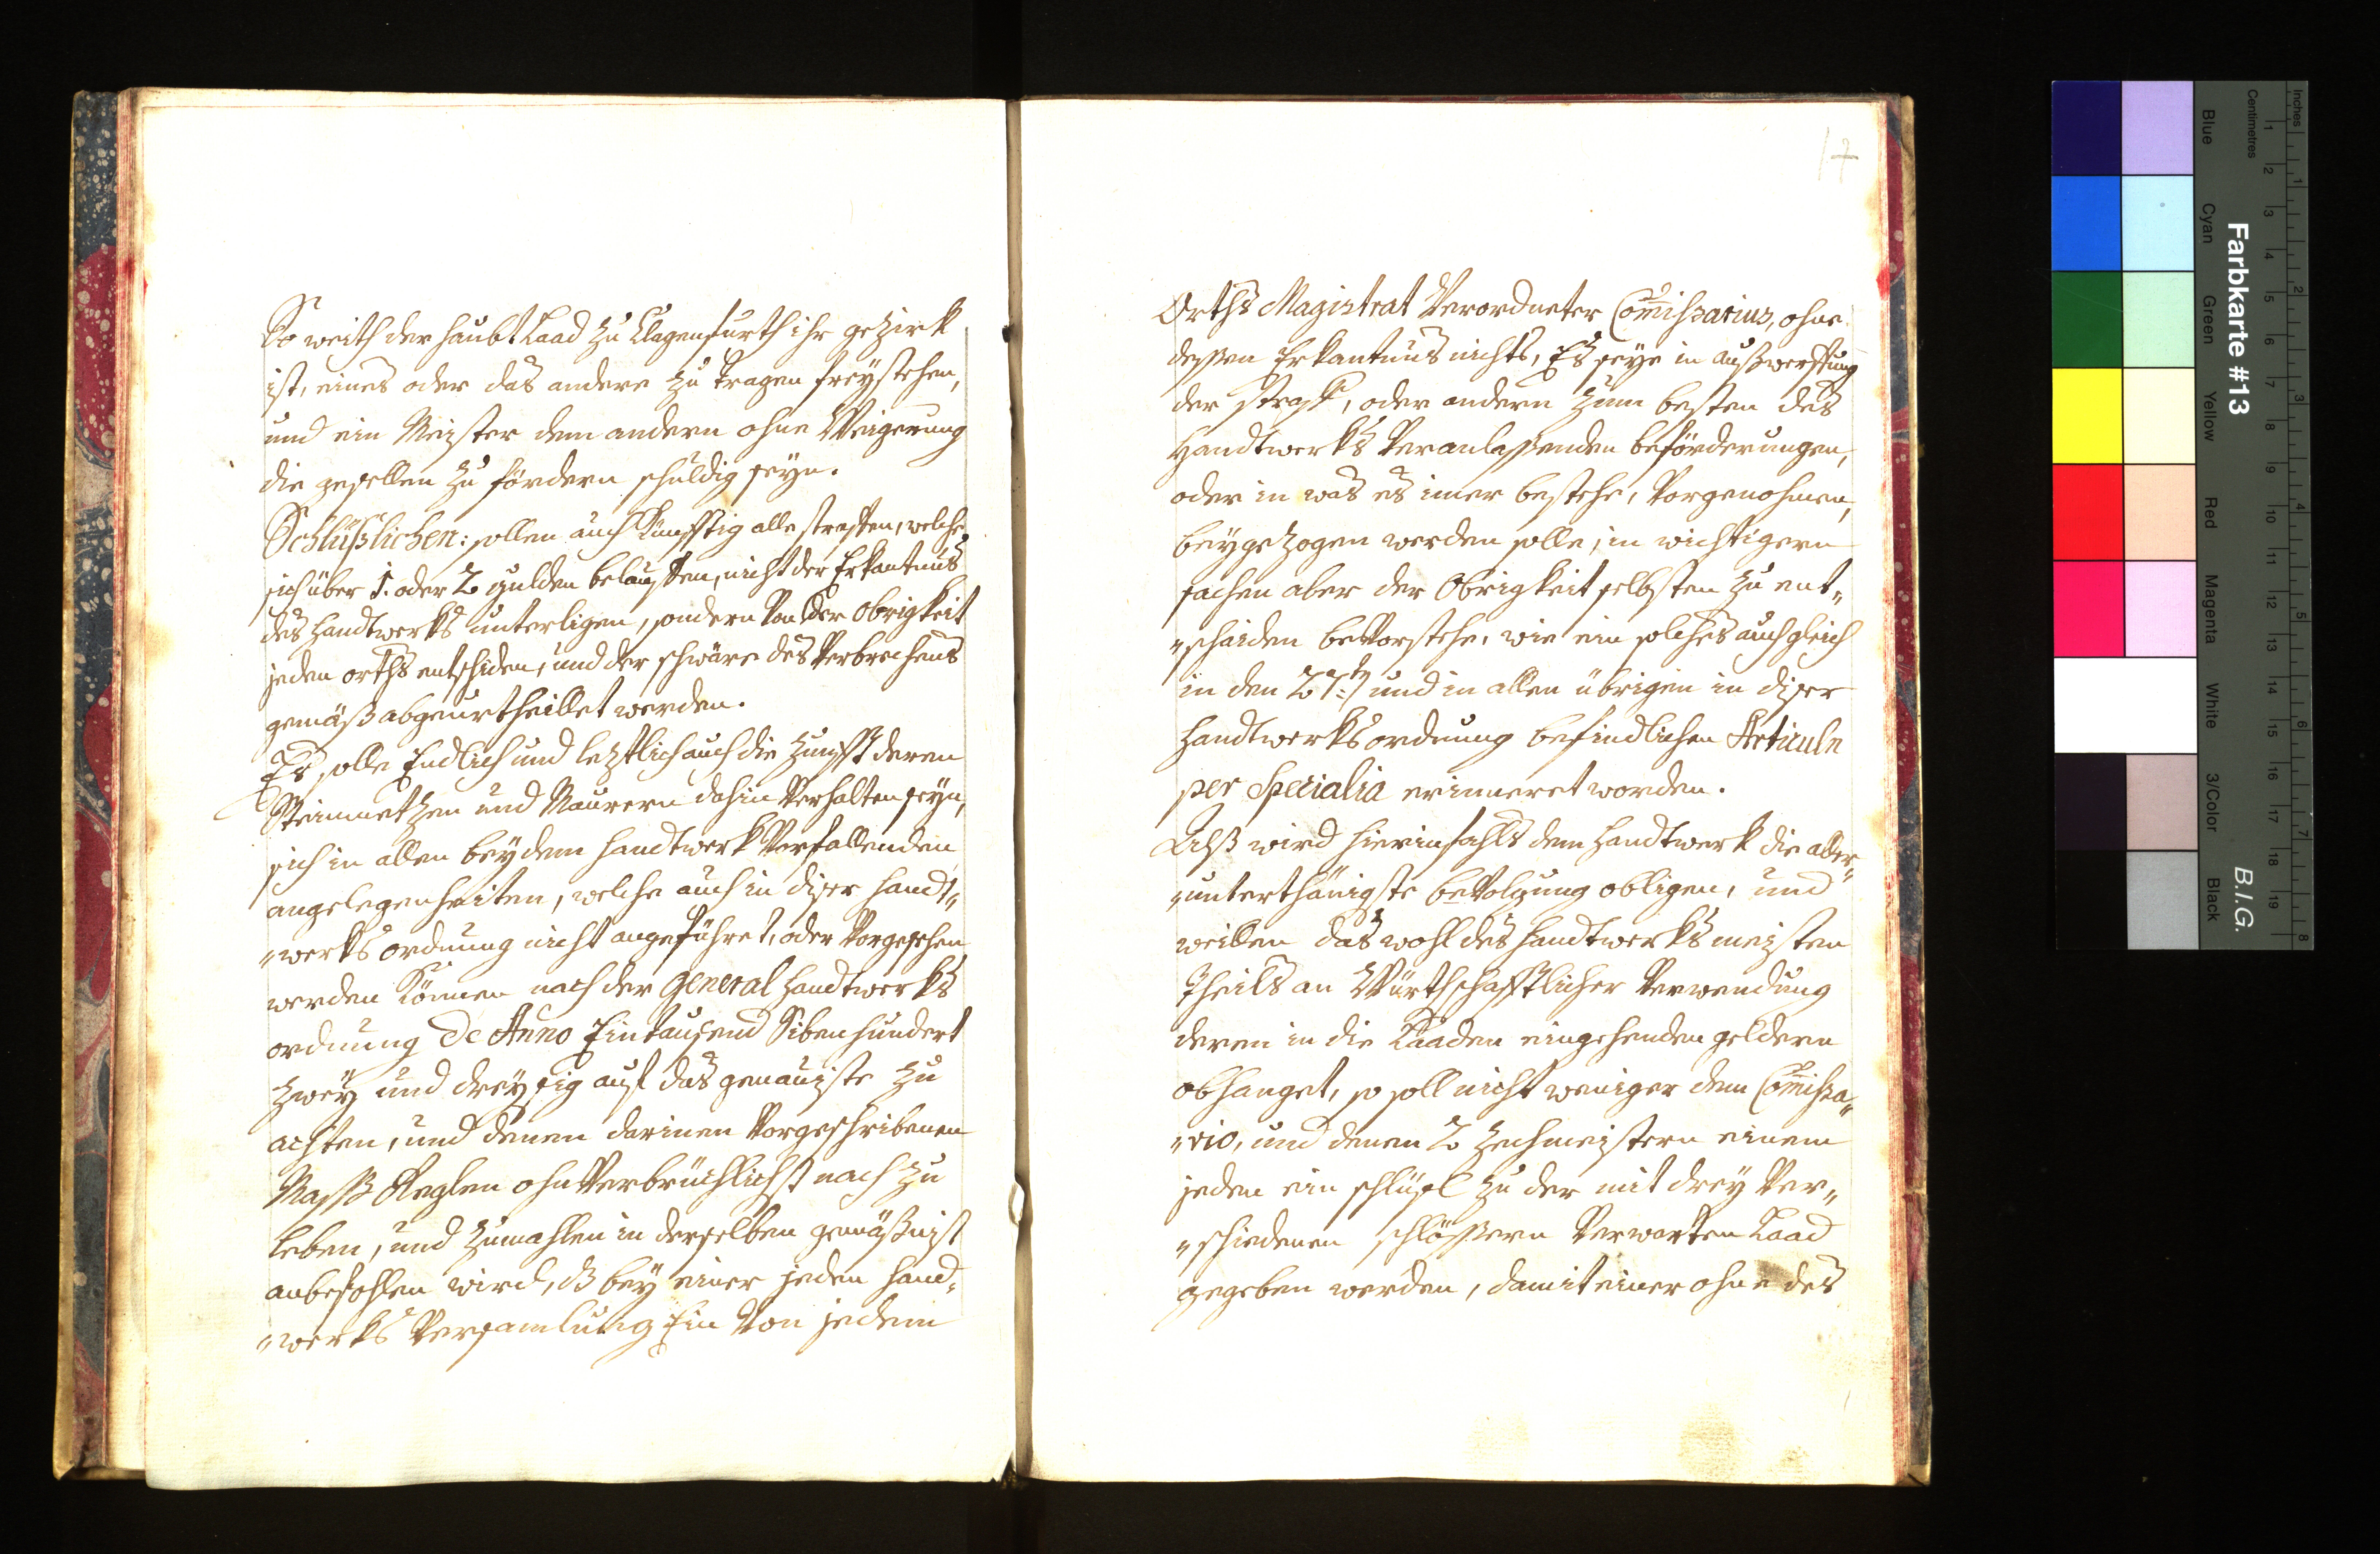 So weith der haubt Laad zu Clagenfurth ihr gezirk
ist, eines oder das andere zu tragen freystehen,
und ein Meister dem andern ohne Weigerung
die gesellen zu fördern schuldig seyn.
Schlüßlichen: sollen auch Künfftig alle straffen, welche
sich über 1. oder 2 gulden belauffen, nicht der Erkantnus
des Handtwerks unterligen, sondern von der Obrigkeit
jeden orths entschiden, und der schwäre des Verbrechens
gemäß abgeurtheillet werden.
Es solle Endlich und leztlich auch die Zunfft deren
Steinmetzen und Maurern dahin Verhalten seyn,
sich in allen bey dem Handtwerk Vorfallenden
angelegenheiten, welche auch in diser Handt„
„werks ordnung nicht angeführet, oder Vorgesehen
werden Können nach der General Handtwerks
ordnung De Anno Eintausend Sibenhundert
zwey und dreyssig auf das genauiste zu
achten, und denen darinen Vorgeschribenen
Maß Reglen ohnVerbrüchlichst nach zu
leben, und zumahlen in derselben gemäßnist
anbefohlen wird, dß bey einer jeden Hand„
„werks Versamlung Ein Von jedem
17
Orths Magistrat Verordneter Com̅issarius, ohne
dessen Erkantnus nichts, Es seye in außwerffung
der straff, oder andern zum besten des
Handtwerks Veranlassenden beförderungen,
oder in was es imer bestehe, Vorgenohmen,
beygezogen werden solle, in wichtigern
sachen aber der Obrigkeit selbsten zu ent„
„schaiden beVorstehe, wie ein solches auch gleich
in den 27:t und in allen übrigen in diser
Handtwerksordnung befindlichen Articuln
per Specialia erinneret worden.
Alß wird hierinfahls dem Handtwerk die aller„
„unterthänigste beVolgung obligen, und
weillen das wohl des Handtwerks meisten
Theils an Würthschafftlicher Verwendung
deren in die Laaden eingehenden geldern
abhanget, so soll nicht weniger dem Com̅issa„
„rio, und denen 2 Zechmeistern einem
jeden ein schlüssl zu der mit drey Ver„
„schiedenen schlössern Verwarten Laad
gegeben werden, damit einer ohne des
Inches
Centimetres
Farbkarte #13
B.I.G.
Blue
Cyan
Green
Yellow
Red
Magenta
White
3/Color
Black
1 2 3 4 5 6 7 8 9 10 11 12 13 14 15 16 17 18 19
1 2 3 4 5 6 7 8